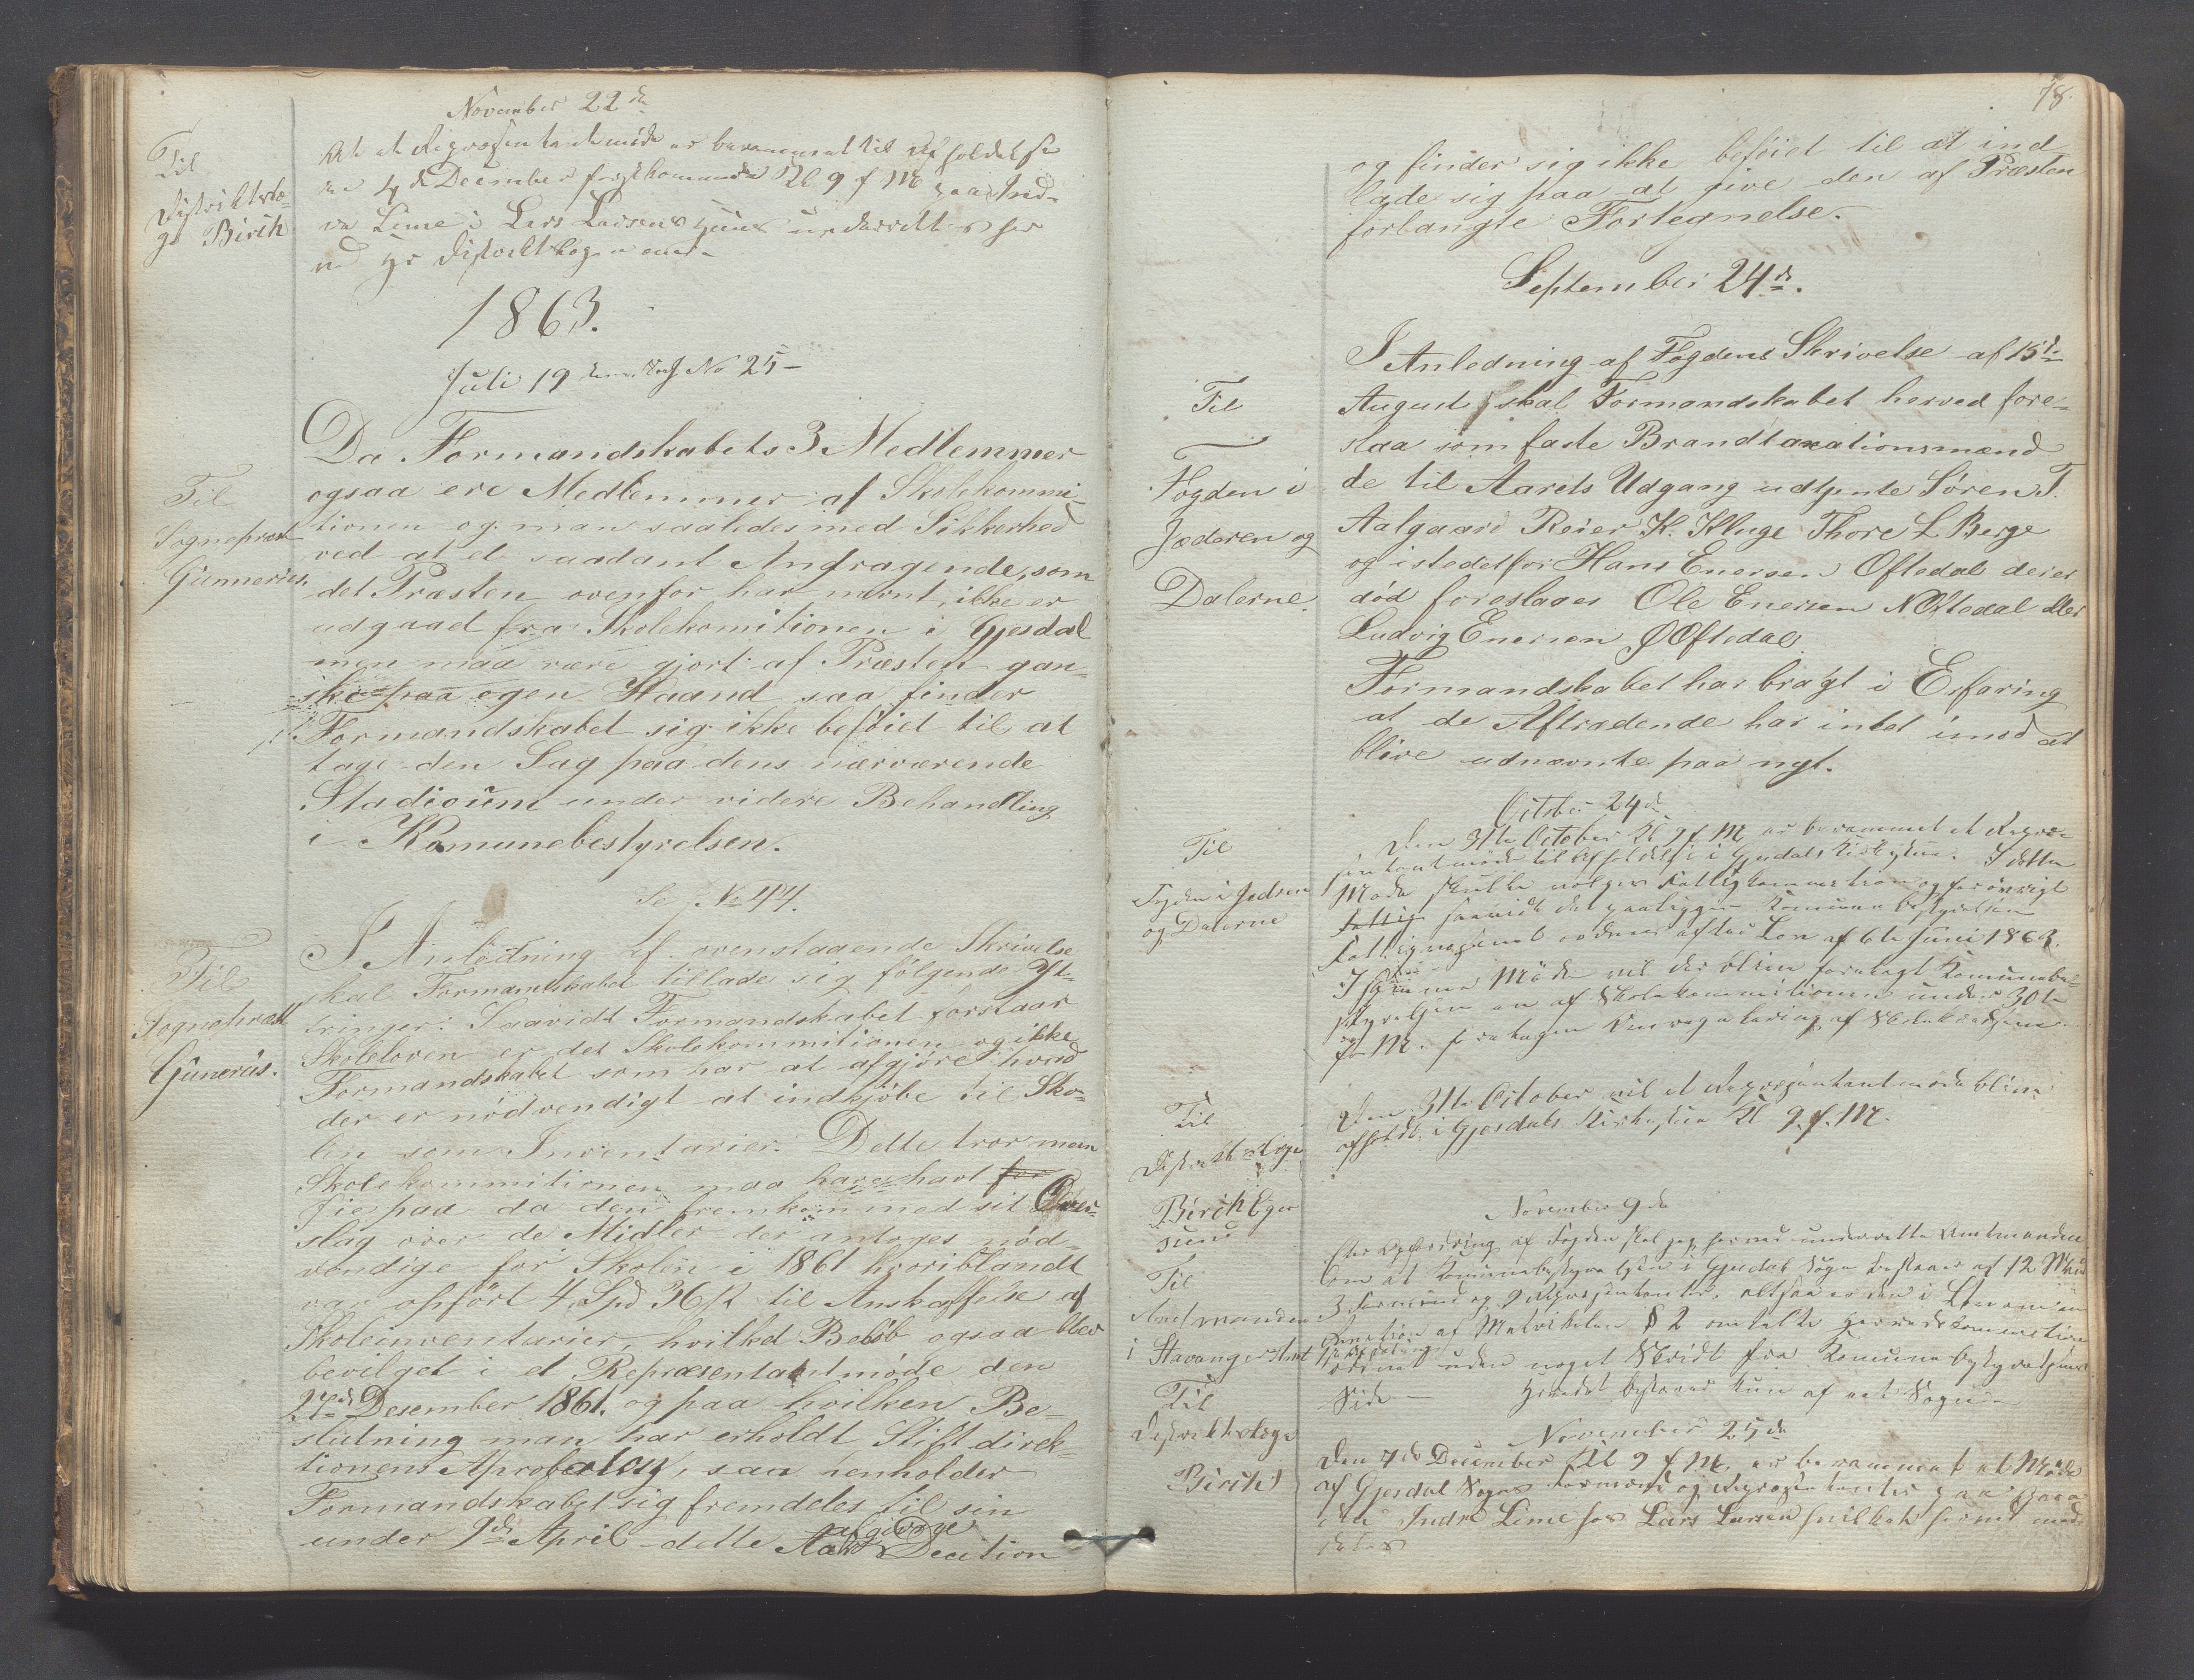 November 22de
Til
Distriktslæ-
ge Birch
At et Repræsentantmøde er berammet til Afholdelse
den 4de December førstkommende Kl 9 f M paa Ind-
re Lime i Lars Larsens Huus underrettes her
ved Hr Distriktslægen om.
1863.
Juli 19 No 25
Til
Sognepræst
Gunnerius.
Da Formandskabets 3 Medlemmer
ogsaa ere Medlemmer af Skolekommi-
tionen og man saaledes med Sikkerhed
ved at et saadant Andragende, som
det Præsten ovenfor har nævnt, ikke er
udgaaet fra Skolekomitionen i Gjesdal
men maa være gjort af Præsten gan-
ske paa egen Haand saa finder
Formandskabet sig ikke beføiet til at
tage den Sag paa dens nærværende
Stadioum under videre Behandling
i Komunebestyrelsen.
Se J. No 44.
Til
Sognepræst
Gunerius.
I Anledning af ovenstaaende Skrivelse
skal Formandskabet tillade sig følgende Yt-
tringer: Saavidt Formandskabet forstaar
Skoleloven er det Skolekommitionen og ikke
Formandskabet som har at afgjøre hvad
der er nødvendigt at indkjøbe til Sko-
len som Inventarier. Dette tror man
Skolekommitionen maa have havt for
Øie paa da den fremkom med sit Over-
slag over de Midler der antoges nød-
vendige for Skolen i 1861 hvoriblandt
var opført 4 Spd 36 s til Anskaffelse af
Skoleinventarier, hvilket Beløb ogsaa blev
bevilget i et Repræsentantmøde den
27de Desember 1861. og paa hvilken Be-
slutning man har erholdt Stiftdirek-
tionens Aprobation, saa henholder
Formandskabet sig fremdeles til sin
under 9de April dette Aar afgivne Decition
78.
og finder sig ikke beføiet til at ind
lade sig paa at give den af Præsten
forlangte Fortegnelse.
September 24de.
Til
Fogden i
Jæderen og
Dalerne.
I Anledning af Fogdens Skrivelse af 15de
August skal Formandskabet herved fore-
slaa som faste Brandtaxationsmænd
de til Aarets Udgang udtjente Søren T.
Aalgaard Reier K. Kluge Thore L Berge
og istedetfor Hans Enersen Oftedal der er
død foreslaaes Ole Enersen N Oftedal eller
Ludvig Enersen Ø Oftedal.
Formandskabet har bragt i Erfaring
at de Aftrædende har intet imod at
blive udnævnte paa nyt.
October 24de
Til
Fogden i Jedren
og Dalerne
Den 31te October Kl 9 f M er berammet et Repræ-
sentantmøde til Afholdelse i Gjesdals Kirkestue. I dette
Møde skulle vælges Fattigkommission og forøvrigt
Fattig saavidt det paaligger Komunebestyrelsen
Fattigvæsenet ordnes efter Lov af 6te Juni 1863.
I samme Møde vil der blive forelagt Komunebe-
styrelsen en af Skolekommitionen under 30te
f M. foretagen Omregulering af Skolekredsene.
Til
Distriktslæge
Birch Eger
sund
Den 31te October vil et Repræsentantmøde blive
afholdt i Gjesdals Kirkestue Kl 9. f. M.
November 9de
Til
Amtmanden
i Stavanger Amt
Efter Opfordring af Fogden skal jeg herved underrette Amtmanden
om at Komunebestyrelsen i Gjesdal Sogn bestaar af 12 Mænd
3 Formænd og 9 Repræsentanter, altsaa er den i Lov om
af Matrikelen § 2 omtalte Herredskommition
ordnet uden noget Skridt fra Komunebestyrelsens
Side – Herredet bestaaer kun af eet Sogn.
November 25de
Til
Distriktslæge
Birch
Den 7de December Kl 9 f M. er berammet et Møde
af Gjesdal Sogns Formænd og Repræsentanter paa Gaar
den Indre Lime hos Lars Larsen hvilket herved med
deles